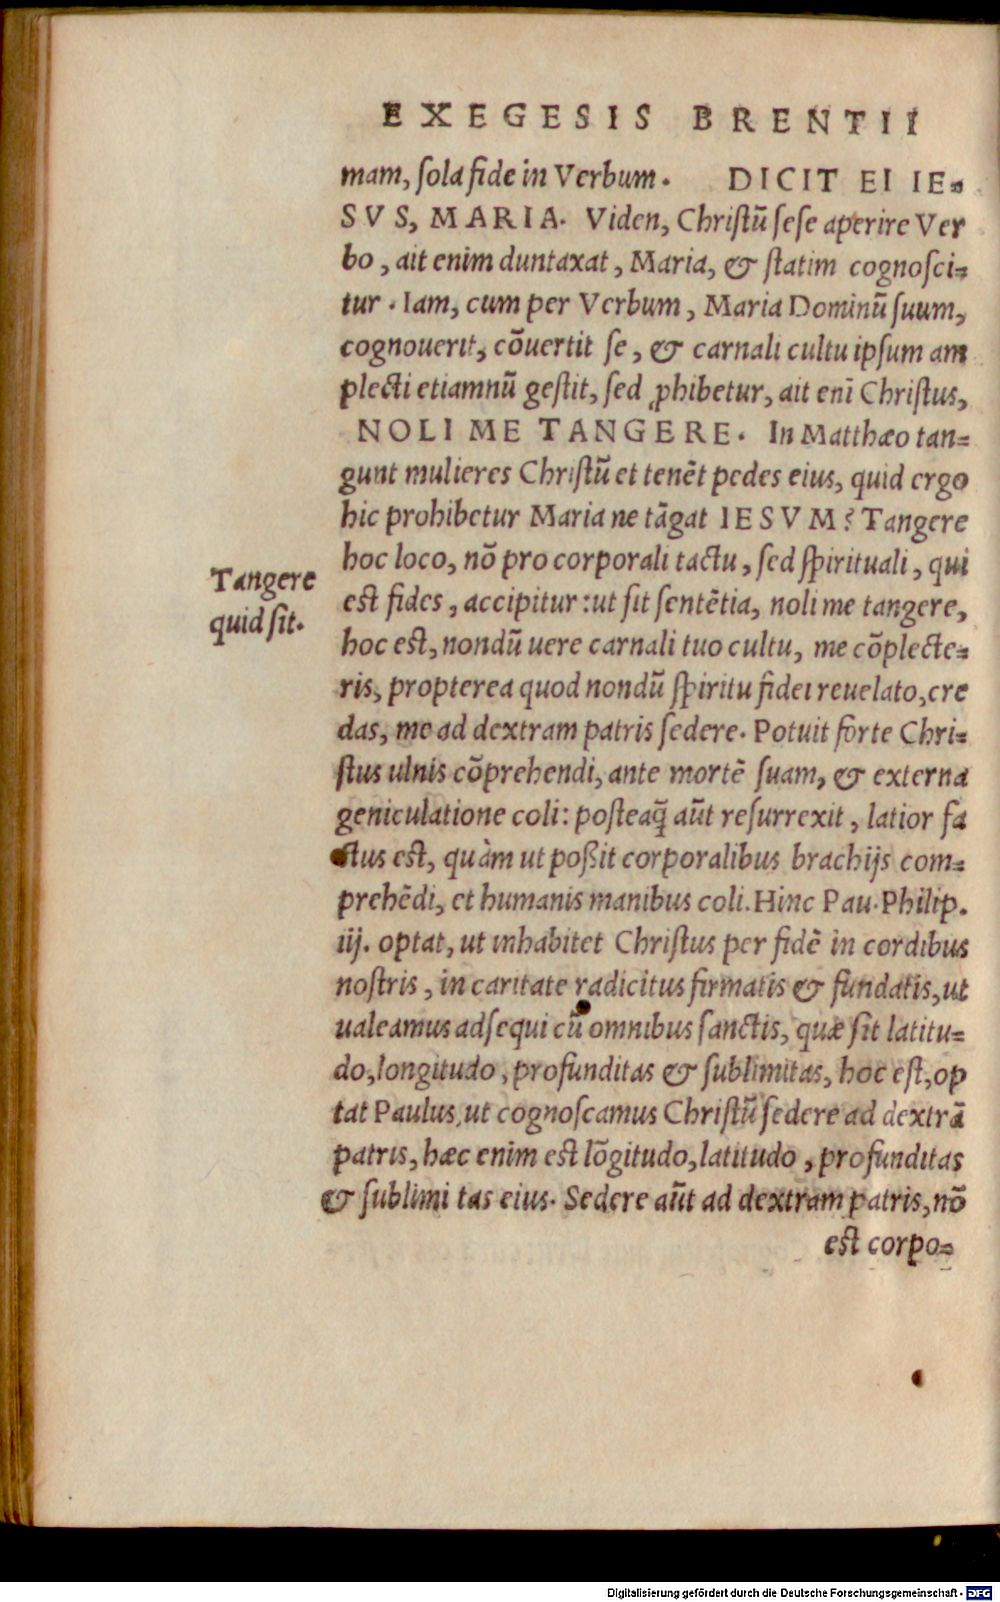 EXEGESIS BRENTII
mam, ſola fide in Verbum. DICIT EI IE-
SVS, MARIA. Viden, Chriſtū ſeſe aperire Ver
bo, ait enim duntaxat, Maria, & ſtatim cognoſci-
tur. Iam, cum per Verbum, Maria Dominū ſuum,
cognouerit, cōuertit ſe, & carnali cultu ipſum am
plecti etiamnū geſtit, ſed ꝓhibetur, ait enī Chriſtus,
NOLI ME TANGERE. In Matthæo tan-
gunt mulieres Chriſtū et tenēt pedes eius, quid ergo
hic prohibetur Maria ne tāgat IESVM? Tangere
hoc loco, nō pro corporali tactu, ſed ſpirituali, qui
Tangere
quid ſit.
eſt fides, accipitur: ut ſit ſentētia, noli me tangere,
hoc eſt, nondū uere carnali tuo cultu, me cōplecte-
ris, propterea quod nondū ſpiritu fidei reuelato, cre
das, me ad dextram patris ſedere. Potuit forte Chri-
ſtus ulnis cōprehendi, ante mortē ſuam, & externa
geniculatione coli: poſteaq̄ aūt reſurrexit, latior fa
ctus eſt, quàm ut poßit corporalibus brachijs com-
prehēdi, et humanis manibus coli. Hinc Pau. Philip.
iij. optat, ut inhabitet Chriſtus per fidē in cordibus
noſtris, in caritate radicitus firmatis & fundatis, ut
ualeamus adſequi cū omnibus ſanctis, quæ ſit latitu-
do, longitudo, profunditas & ſublimitas, hoc eſt, op
tat Paulus, ut cognoſcamus Chriſtū ſedere ad dextrā
patris, hæc enim eſt lōgitudo, latitudo, profunditas
& ſublimi tas eius. Sedere aūt ad dextram patris, nō
eſt corpo-
Digitalisierung gefördert durch die Deutsche Forschungsgemeinschaft - DFG